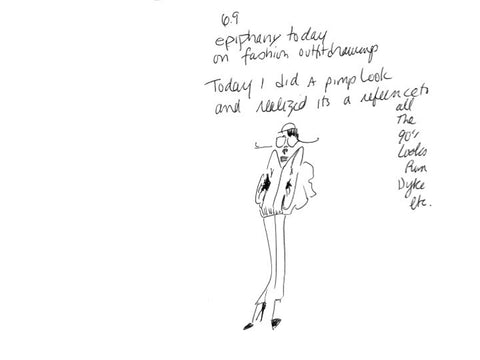 6.9
epiphany today
on fashion outfit drawings
Today I did a pimp look
and realized its a reference to
all
The
90's
Looks
Dyke
etc.